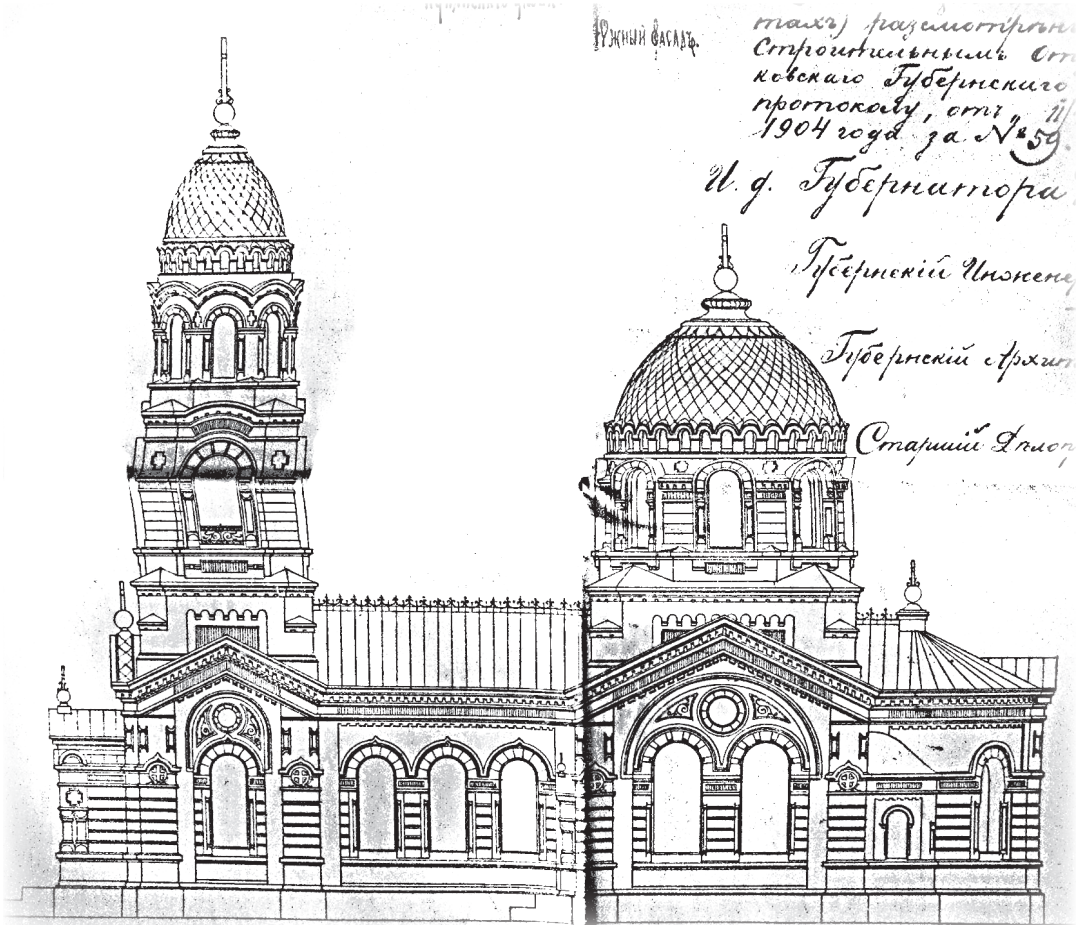 Южный Фасадъ.
тахъ) разсмотрѣн
Строительнымъ От
ковскаго Губернскаго
протоколу, отъ „ 11/
1904 года за № 59.
И. д. Губернатора
Губернскій Инжене
Губернскій Архит
Старшій Дѣлоп